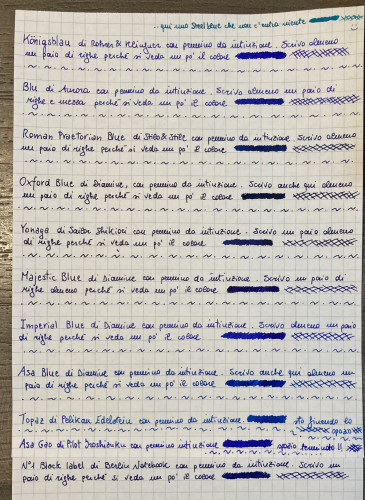 ..qui uno Steel blue che non c'entra niente
Königsblau di Rohrer & Klingner con pennino da intinzione. Scrivo almeno
un paio di righe perché si veda un po' il colore
Blu di Aurora con pennino da intinzione. Scrivo almeno un paio di
righe e mezza perché si veda un po' il colore
Roman Praetorian Blue di Stilo & Stile, con pennino da intinzione. Scrivo almeno
un paio di righe perché si veda un po' il colore
Oxford Blue di Diamine, con pennino da intinzione. Scrivo anche qui almeno
un paio di righe perché si veda un po' il colore
Yonaga di Sailor Shikiori con pennino da intinzione. Scrivo un paio almeno
di righe perché si veda un po' il colore
Majestic Blue di Diamine con pennino da intinzione. Scrivo un paio di
righe almeno perché si veda un po' il colore
Imperial Blue di Diamine con pennino da intinzione. Scrivo almeno un paio
di righe perché si veda un po' il colore
Asa Blue di Diamine con pennino da intinzione. Scrivo anche qui almeno un
paio di righe perché si veda un po' il colore
Topaz di Pelikan Edelstein con pennino da intinzione. sto finendo lo
spazio
Asa Gao di Pilot Iroshizuku con pennino intinzione spazio terminato!!
N°1 Black label di Berlin Notebook con pennino da intinzione. Scrivo un
paio di righe perché si veda un po' il colore